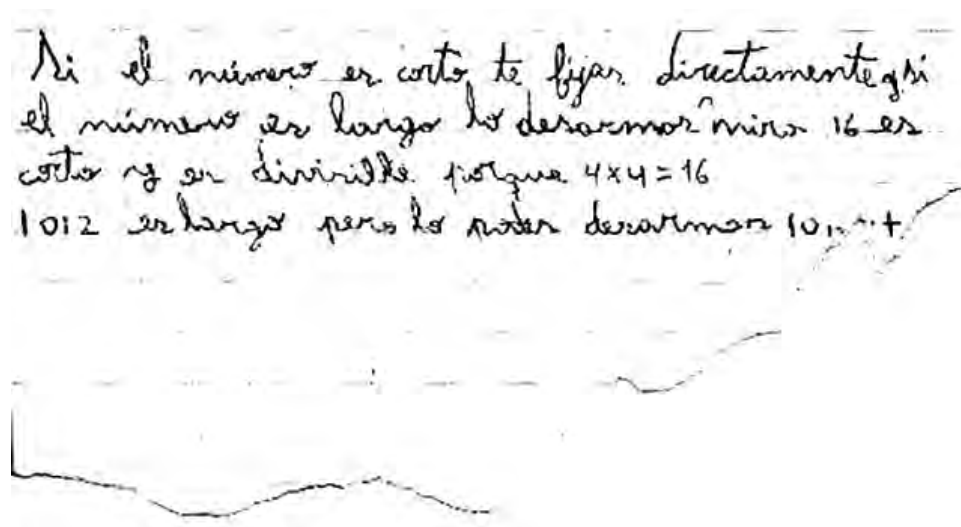 Si el número es corto te fijas directamente y si
el número es largo lo desarmas mira 16 es
corto y es divisible porque 4x4=16
1012 es largo pero lo podes desarmar 10